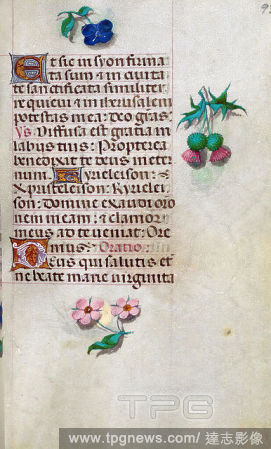 Et sic in syon firma
ta sum & in ciuita
te sanctificata similiter
requieui & in iherusalem
potestas mea: deo gr̃as
Vs. Diffusa est gratia in
labiis tuis: Propterea
benedixit te deus in eter
num. Kyrieleison:
Xpristeleison: Kyrielei
son: domine exaudi oro
nem meam: & clamor
meus ad te ueniat: Ore
mus: Oratio:
Deus qui salutis et
ne beate marie virginita
TPG
www.tpgnews.com / 達志影像